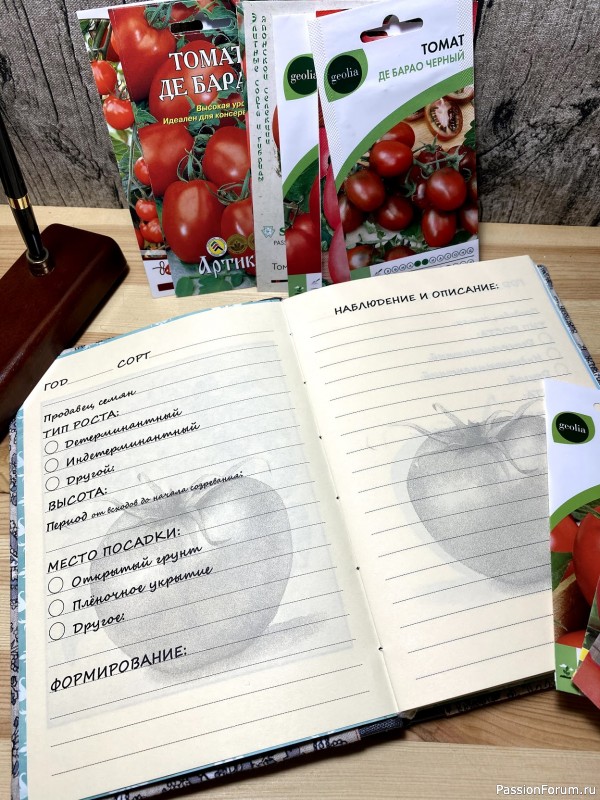 ТОМАТ
ДЕ БАРАО
Высокая уро
Идеален для консер
Артик
Элитные сорта и гибриды
японской селекции
geolia
PASS
Том
geolia
ТОМАТ
ДЕ БАРАО ЧЕРНЫЙ
ГОД СОРТ
Продавец семян
ТИП РОСТА:
Детерминантный
Индетерминантный
Другой:
ВЫСОТА:
Период от всходов до начала созревания:
МЕСТО ПОСАДКИ:
Открытый грунт
Плёночное укрытие
Другое:
ФОРМИРОВАНИЕ:
НАБЛЮДЕНИЕ И ОПИСАНИЕ:
geolia
PassionForum.ru